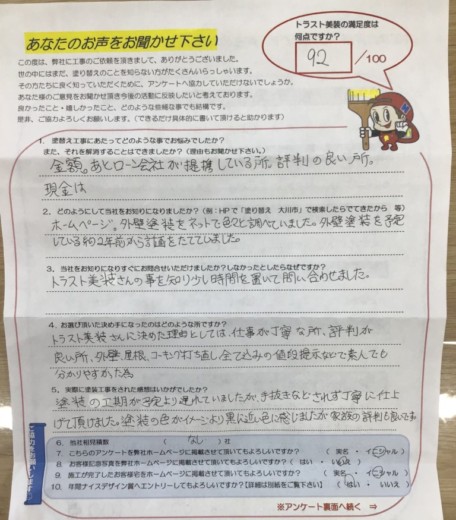 トラスト美装の満足度は
何点ですか?
92 /100
あなたのお声をお聞かせ下さい
この度は、弊社に工事のご依頼を頂きまして、ありがとうございました。
世の中にはまだ、塗り替えのことを知らない方がたくさんいらっしゃいます。
その方たちに良く知っていただくために、アンケートへ協力していただけないでしょうか。
あなた様のご意見をお聞かせ頂き今後の活動に反映したいと考えております。
良かったこと・嬉しかったこと、どのような些細な事でも結構です。
是非、ご協力よろしくお願いします。(できるだけ具体的に書いて頂けると助かります)
1. 塗替え工事にあたってどのような事でお悩みでしたか?
また、それを解消することはできましたか?(理由もお聞かせ下さい。)
金額。あとローン会社が提携している所。評判の良い所。
現金は
2. どのようにして当社をお知りになりましたか?(例:HPで「塗り替え 大川市」で検索したらでてきたから 等)
ホームページ。外壁塗装をネットで色々と調べていました。外壁塗装を予定
している約2年前から計画をたてていました。
3. 当社をお知りになりすぐにお問合せいただけましたか?しなかったとしたらなぜですか?
トラスト美装さんの事を知り少し時間を置いて問い合わせました。
4. お選び頂いた決め手になったのはどのような所ですか?
トラスト美装さんに決めた理由としては、仕事が丁寧な所、評判が
良い所、外壁、屋根、コーキング打ち直し全て込みの値段提示などで素人でも
分かりやすかった為
5. 実際に塗装工事をされた感想はいかがでしたか?
塗装の工期が予定より遅れていましたが、手抜きなどされず丁寧に仕上
げて頂けました。塗装の色がイメージより黒に近い色に感じましたが家族の評判も良いです
6. 他社相見積数 ( なし )社
7. こちらのアンケートを弊社ホームページに掲載させて頂いてもよろしいですか? ( 実名 ・ イニシャル )
8. お客様記念写真を弊社ホームページに掲載させて頂いてもよろしいですか? ( はい ・ いいえ )
9. 施工が完了したお宅を弊社ホームページに掲載させて頂いてもよろしいですか? ( 実名 ・ イニシャル )
10. 年間ナイスデザイン賞へエントリーしてもよろしいですか?(詳細は別紙をご覧下さい) ( はい ・ いいえ )
※アンケート裏面へ続く ⇒